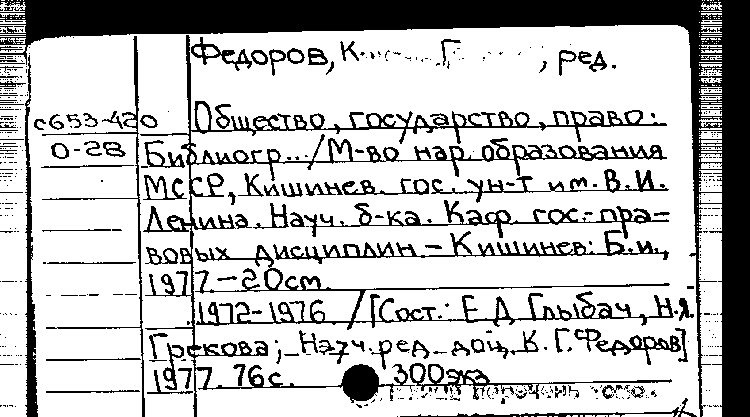 Федоров, К Г , ред.
с653-420 Общество, государство, право:
О-28 Библиогр.../М-во нар. образования
МССР, Кишинев. гос. ун-т им. В.И.
Ленина. Науч. б-ка. Каф. гос.-пра-
вовых дисциплин. - Кишинев: Б.и.,
1977. - 20см.
1972-1976 / [Сост.: Е Д Глыбач, Н.Я.
Грекова; Науч. ред. доц. К.Г. Федоров]
1977. 76с. 300экз
перечень